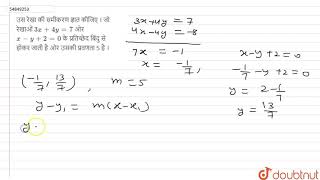 54849253
उस रेखा की समीकरण ज्ञात कीजिए । जो
रेखाओं 3x + 4y = 7 और
x − y + 2 = 0 के प्रतिच्छेद बिंदु से
होकर जाती है और उसकी प्रवणता 5 है ।
3x+4y = 7
4x-4y = -8
7x = -1
x = -1/7
x-y+2 = 0
-1/7 -y+2 = 0
y = 2-1/7
y = 13/7
(-1/7, 13/7) , m=5
y-y₁ = m(x-x₁)
y -
doubtnut